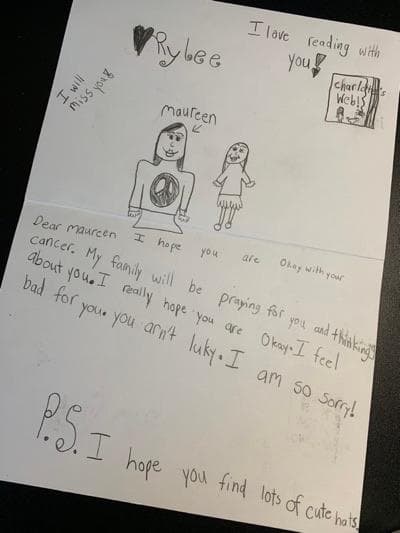 I love reading with
you!
♥Rylee
charlotte's
Web!
I will
miss you!
maureen
Dear maureen I hope you are Okay with your
cancer. My family will be praying for you and thinking
about you. I really hope you are Okay. I feel
bad for you. you arn't luky. I am so sorry!
P.S. I hope you find lots of cute hats.